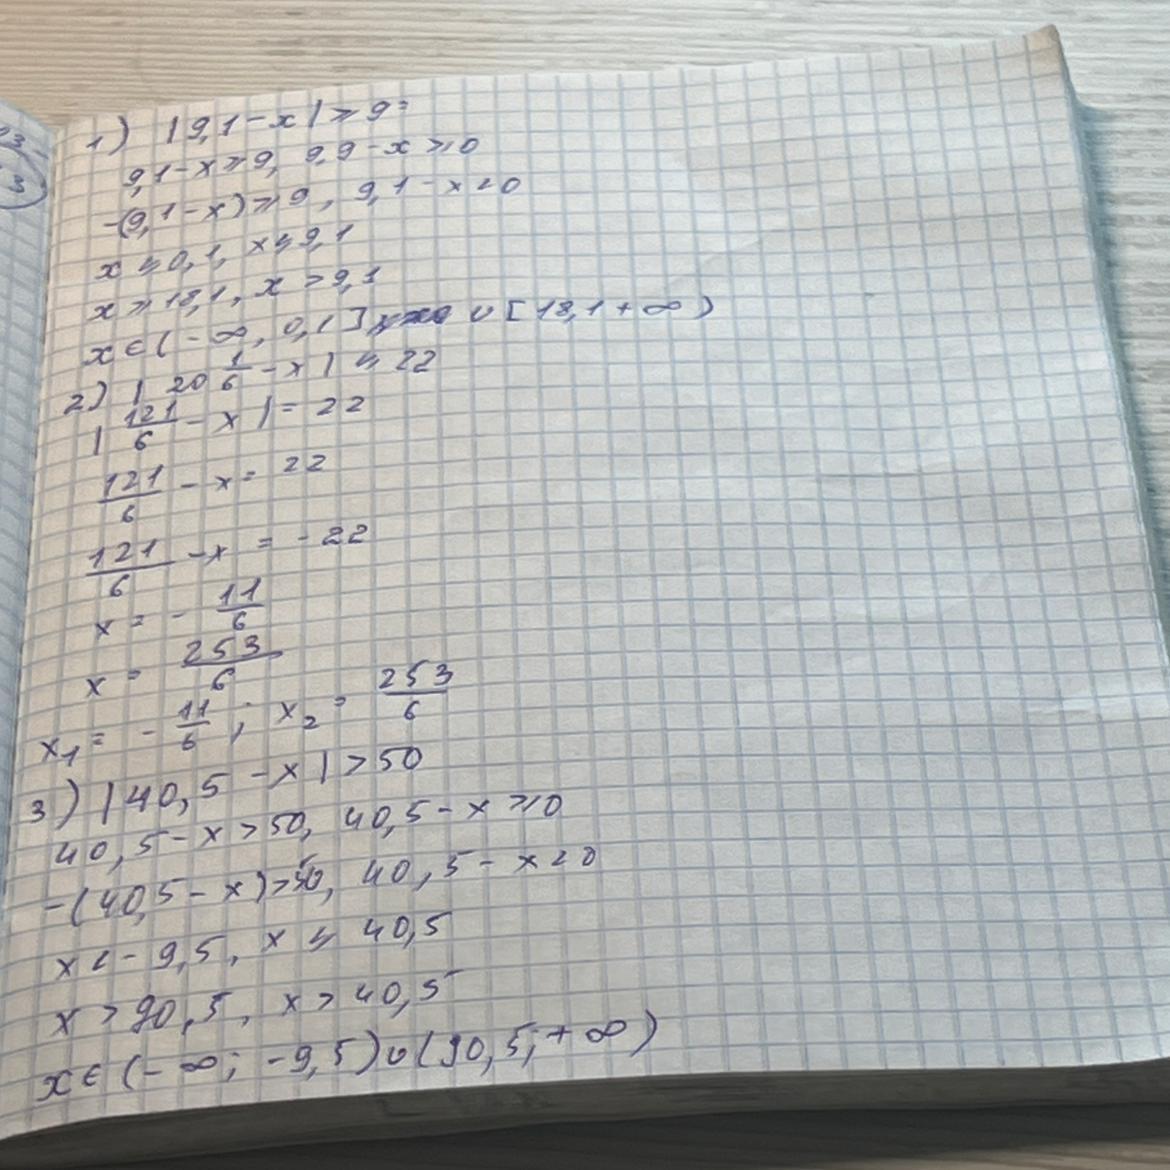 1) |9,1 - x| ⩾ 9
9,1 - x ⩾ 9, 9,9 - x ⩾ 0
-(9,1 - x) ⩾ 9, 9,1 - x < 0
x ⩽ 0,1, x ⩽ 9,1
x ⩾ 18,1, x > 9,1
x ∈ (-∞, 0,1] ∪ [18,1 + ∞)
2) |20 1/6 - x| ⩽ 22
|121/6 - x| = 22
121/6 - x = 22
121/6 - x = -22
x = - 11/6
x = 253/6
x₁ = - 11/6 ; x₂ = 253/6
3) |40,5 - x| > 50
40,5 - x > 50, 40,5 - x ⩾ 0
-(40,5 - x) > 50, 40,5 - x < 0
x < - 9,5, x ⩽ 40,5
x > 90,5, x > 40,5
x ∈ (-∞; -9,5) ∪ (90,5; +∞)